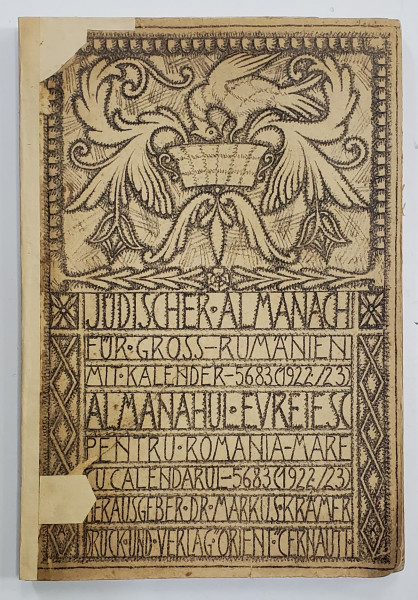 JÜDISCHER·ALMANACH
FÜR·GROSS-RUMÄNIEN
MIT·KALENDER-5683(1922/23)
ALMANAHUL·EVREIESC
PENTRU·ROMANIA-MARE
CU·CALENDARUL-5683(1922/23)
HERAUSGEBER·DR·MARKUS·KRÄMER
DRUCK·UND·VERLAG·ORIENT·CERNAUTI·